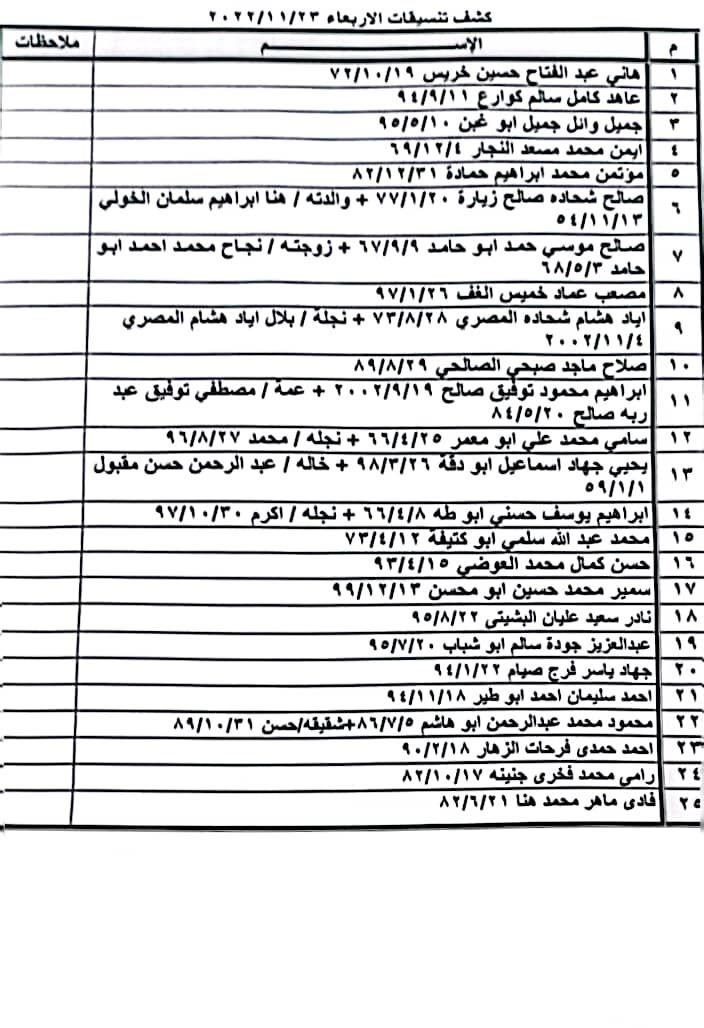 كشف تنسيقات الاربعاء ٢٠٢٢/١١/٢٣
م الإســـم ملاحظات
١ هاني عبد الفتاح حسين خريس ٧٢/١٠/١٩
٢ عاهد كامل سالم كوارع ٩٤/٩/١١
٣ جميل وائل جميل ابو غبن ٩٥/٥/١٠
٤ ايمن محمد مسعد النجار ٦٩/١٢/٤
٥ مؤتمن محمد ابراهيم حمادة ٨٢/١٢/٣١
٦ صالح شحاده صالح زيارة ٧٧/١/٢٠ + والدته / هنا ابراهيم سلمان الخولي
٥٤/١١/١٣
٧ صالح موسي حمد ابو حامد ٦٧/٩/٩ + زوجته / نجاح محمد احمد ابو
حامد ٦٨/٥/٣
٨ مصعب عماد خميس الغف ٩٧/١/٢٦
٩ اياد هشام شحاده المصري ٧٣/٨/٢٨ + نجلة / بلال اياد هشام المصري
٢٠٠٢/١١/٤
١٠ صلاح ماجد صبحي الصالحي ٨٩/٨/٢٩
١١ ابراهيم محمود توفيق صالح ٢٠٠٢/٩/١٩ + عمة / مصطفي توفيق عبد
ربه صالح ٨٤/٥/٢٠
١٢ سامي محمد علي ابو معمر ٦٦/٤/٢٥ + نجله / محمد ٩٦/٨/٢٧
١٣ يحيي جهاد اسماعيل ابو دقة ٩٨/٣/٢٦ + خاله / عبد الرحمن حسن مقبول
٥٩/١/١
١٤ ابراهيم يوسف حسني ابو طه ٦٦/٤/٨ + نجله / اكرم ٩٧/١٠/٣٠
١٥ محمد عبد الله سلمي ابو كتيفة ٧٣/٤/١٢
١٦ حسن كمال محمد العوضي ٩٣/٤/١٥
١٧ سمير محمد حسين ابو محسن ٩٩/١٢/١٣
١٨ نادر سعيد عليان البشيتى ٩٥/٨/٢٢
١٩ عبدالعزيز جودة سالم ابو شباب ٩٥/٧/٢٠
٢٠ جهاد ياسر فرج صيام ٩٤/١/٢٢
٢١ احمد سليمان احمد ابو طير ٩٤/١١/١٨
٢٢ محمود محمد عبدالرحمن ابو هاشم ٨٦/٧/٥+شقيقه/حسن ٨٩/١٠/٣١
٢٣ احمد حمدى فرحات الزهار ٩٠/٢/١٨
٢٤ رامى محمد فخرى جنينه ٨٢/١٠/١٧
٢٥ فادى ماهر محمد هنا ٨٢/٦/٢١